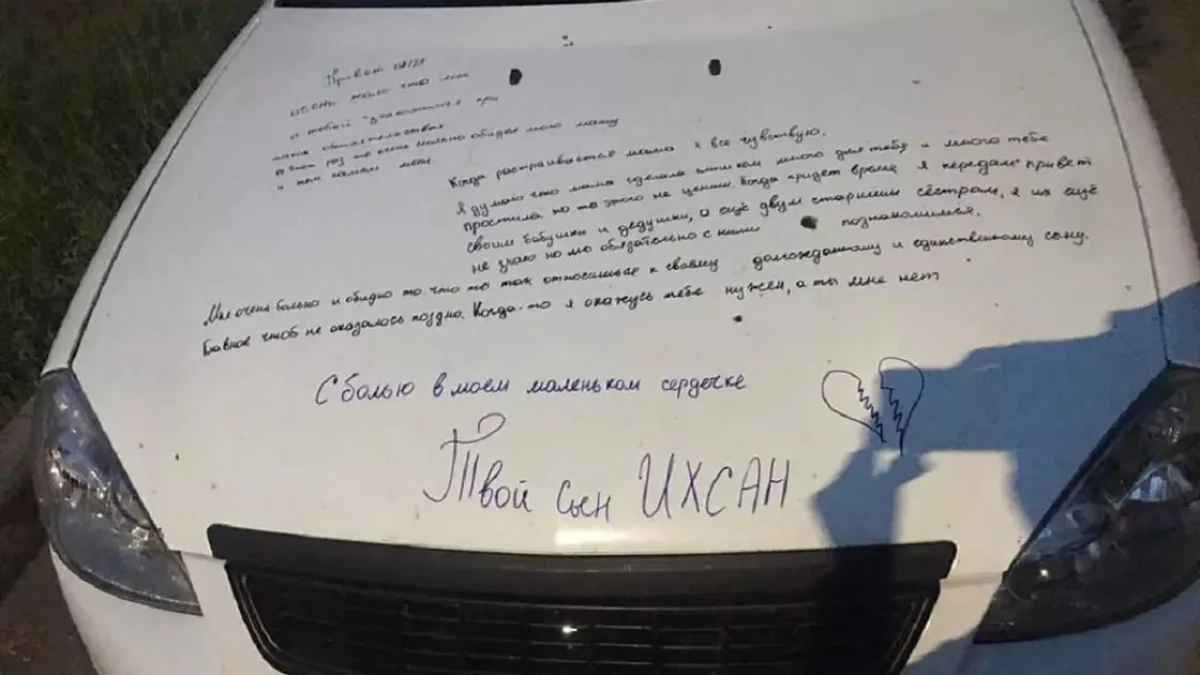 Привет папа
очень жаль что мы
с тобой знакомимся при
таких обстоятельствах
в этот раз ты очень сильно обидел мою маму
и тем самым меня.
Когда растраивается мама я все чувствую.
Я думаю что мама сделала слишком много для тебя и много тебе
простила но ты этого не ценил. Когда придет время я передам привет
своим бабушки и дедушки, а ещё двум старшим сёстрам, я их ещё
не знаю но мы обязательно с ними познакомимся.
Мне очень больно и обидно то, что ты так относишься к своему долгожданному и единственному сыну.
Главное чтоб не оказалось поздно. Когда-то я окажусь тебе нужен, а ты мне нет
С болью в моем маленьком сердечке
Твой сын ИХСАН